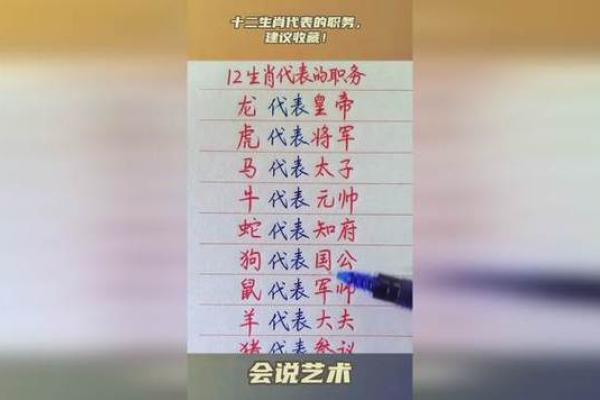 十二生肖代表的职务,
建议收藏!
12生肖代表的职务
龙 代表皇帝
虎 代表将军
马 代表太子
牛 代表元帅
蛇 代表知府
狗 代表国公
鼠 代表军师
羊 代表大夫
猪 代表参议
会说艺术